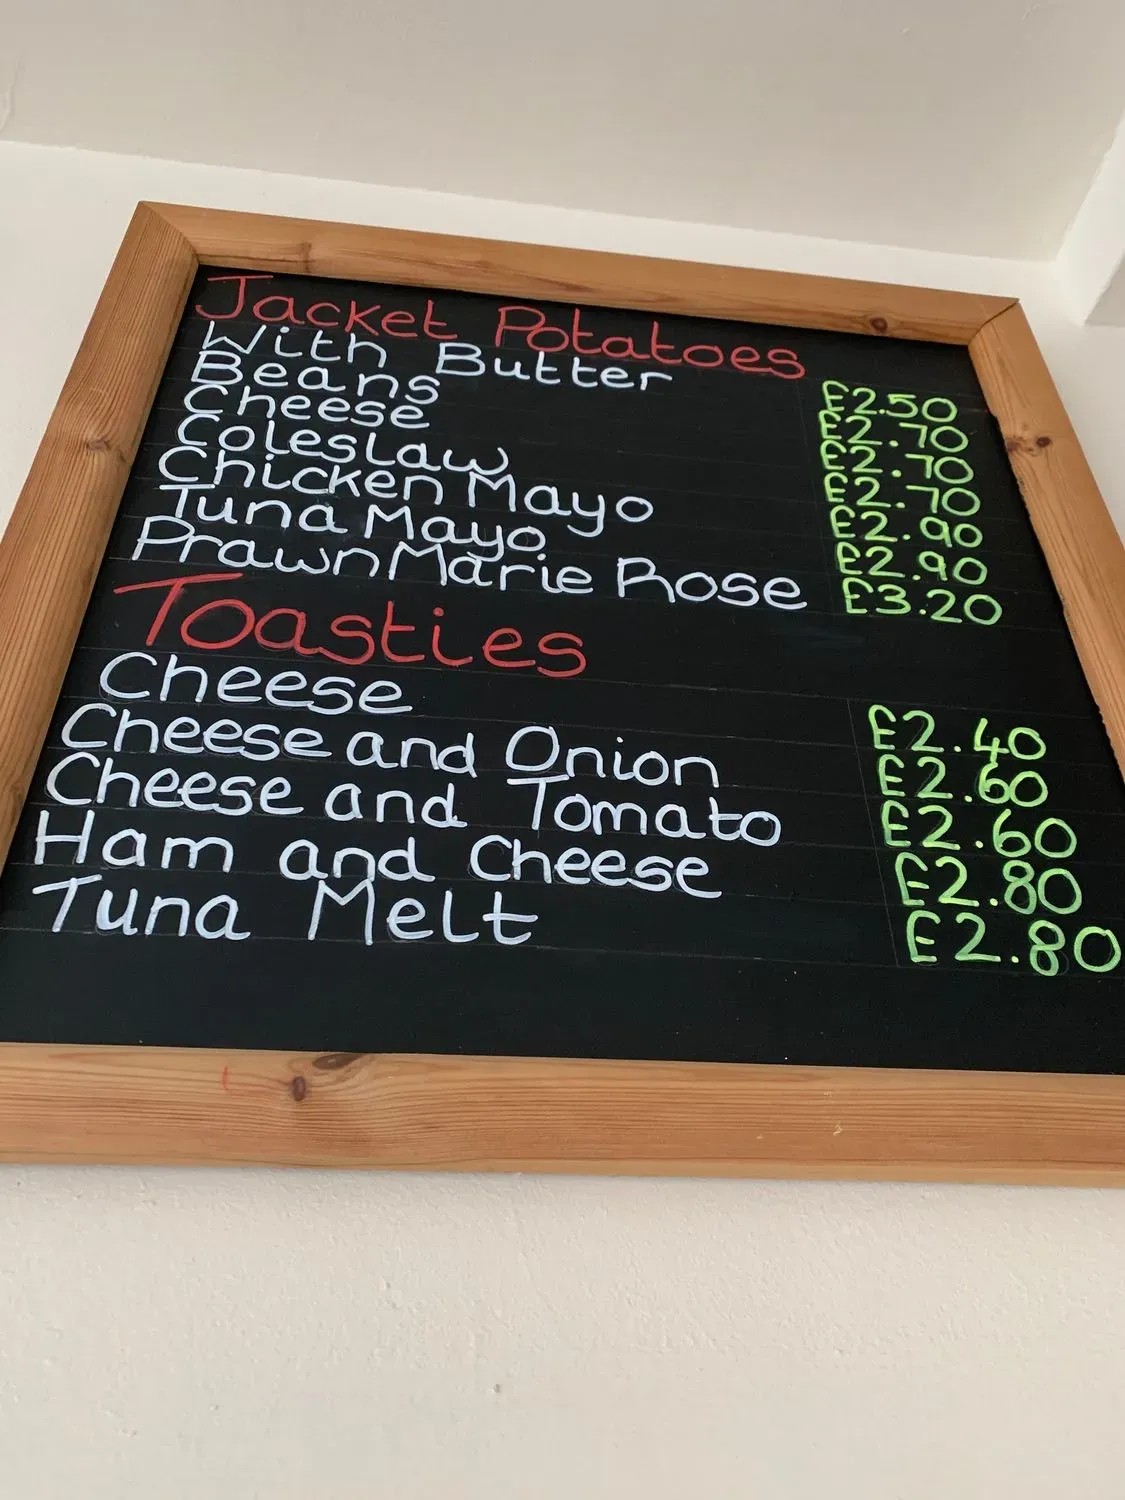 Jacket Potatoes
With Butter £2.50
Beans £2.70
Cheese £2.70
Coleslaw £2.70
Chicken Mayo £2.90
Tuna Mayo £2.90
Prawn Marie Rose £3.20
Toasties
Cheese £2.40
Cheese and Onion £2.60
Cheese and Tomato £2.60
Ham and Cheese £2.80
Tuna Melt £2.80